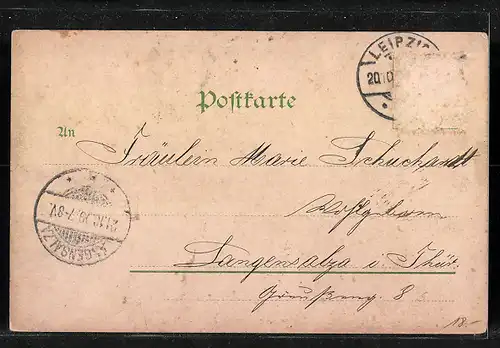 LEIPZIG
20.10
Postkarte
An
Fräulein Marie Schuchardt
Langensalza i. Thür.
8
LANGENSALZA
21.10.99. 7-8V.
18.-